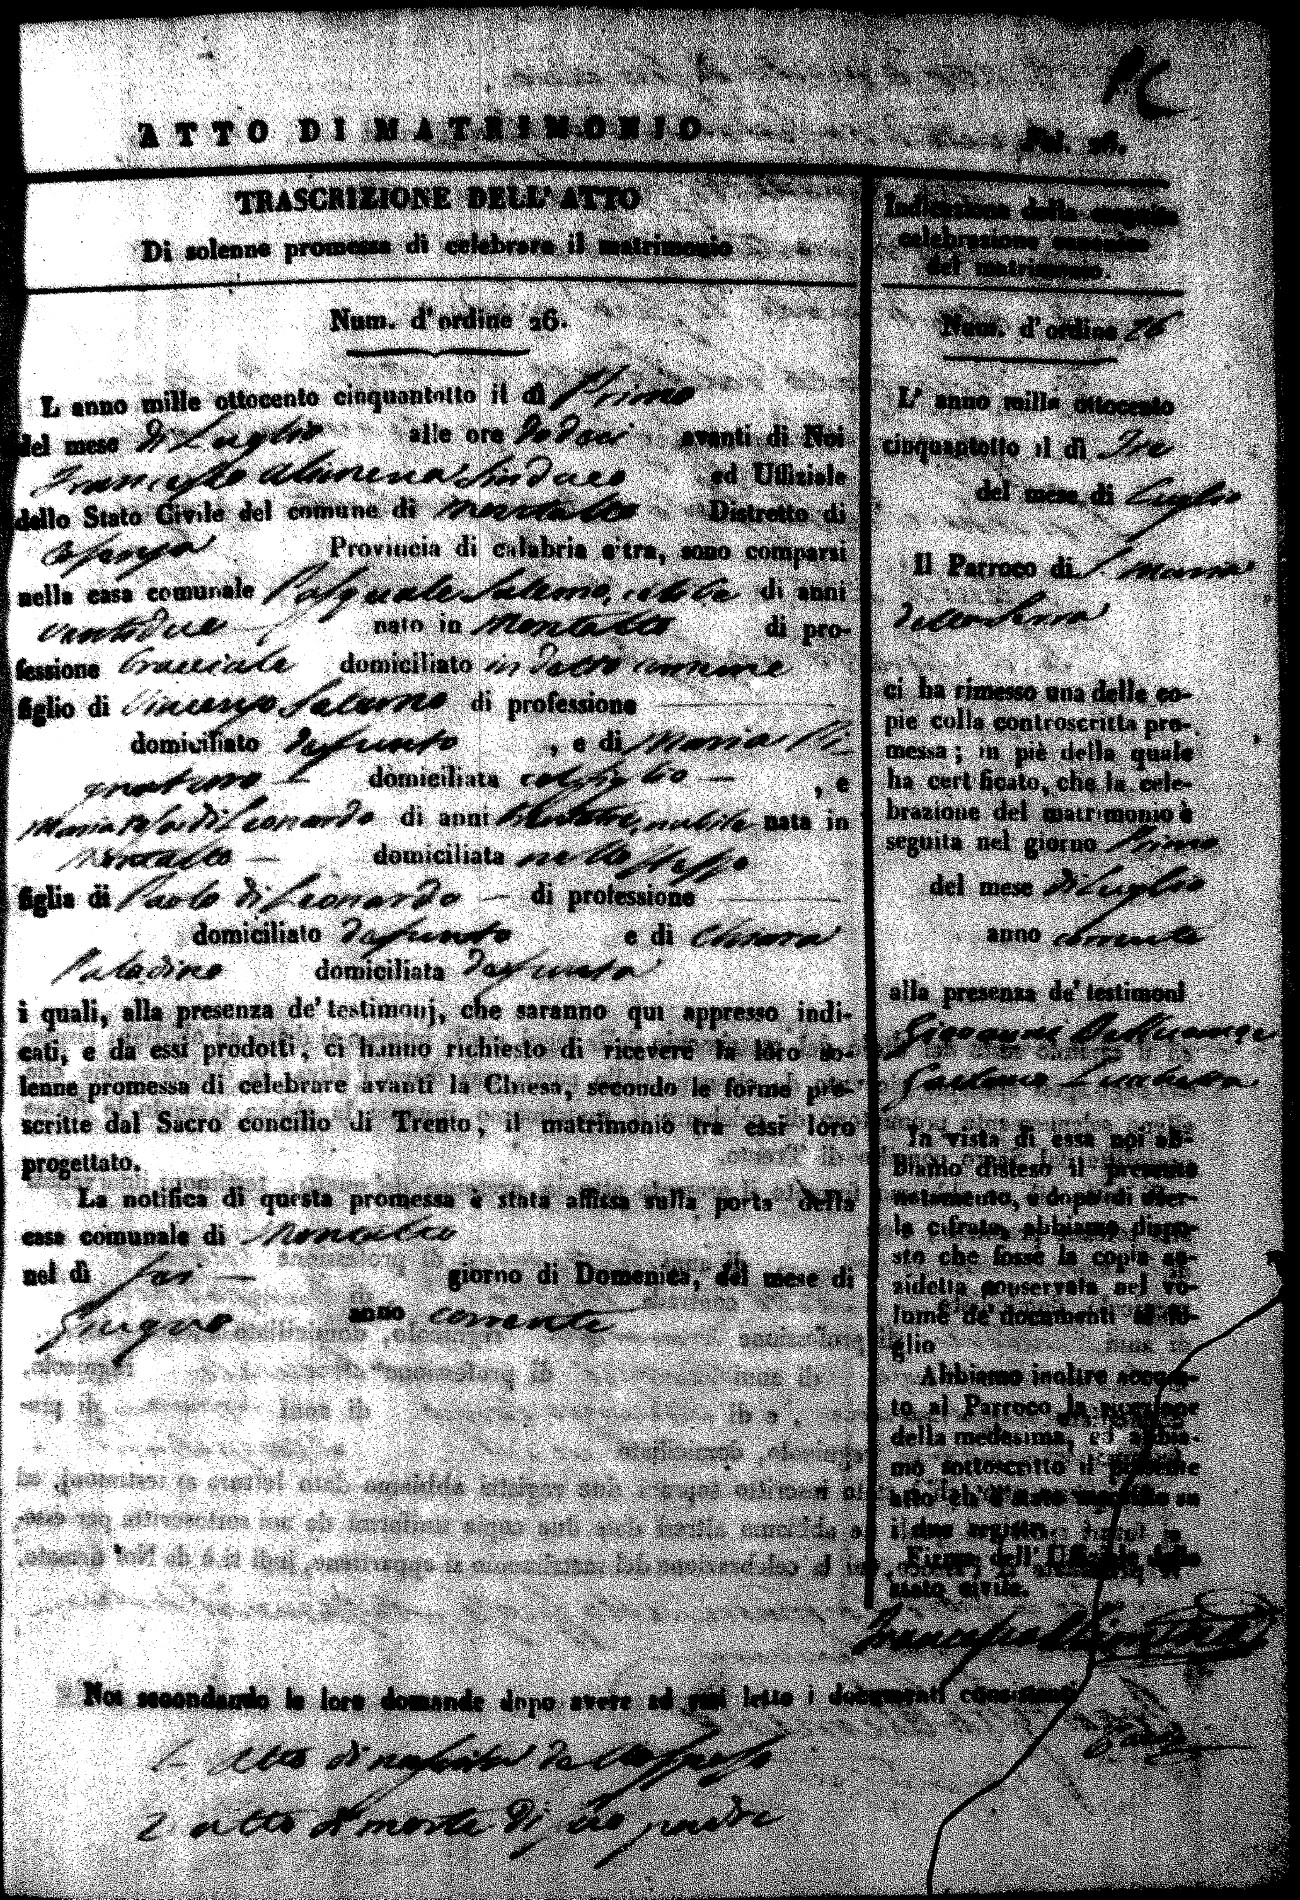 ATTO DI MATRIMONIO
Fol. 26.
TRASCRIZIONE DELL' ATTO
Di solenne promessa di celebrare il matrimonio
Num. d'ordine 26.
L anno mille ottocento cinquantotto il dì Primo
del mese di Luglio alle ore dodeci avanti di Noi
Francesco Alimena Sindaco ed Uffiziale
dello Stato Civile del comune di Montalto Distretto di
Cosenza Provincia di calabria citra, sono comparsi
nella casa comunale Pasquale Salerno, celibe di anni
ventidue nato in Montalto di pro-
fessione Bracciale domiciliato in detto comune
figlio di Vincenzo Salerno di professione
domiciliato defunto , e di Maria Pi-
gnataro domiciliata col figlio , e
Maria Rosa di Leonardo di anni nubile nata in
Montalto domiciliata nello stesso
figlia di Paolo di Leonardo di professione
domiciliato defunto e di Chiara
Paladino domiciliata defunta
i quali, alla presenza de' testimonj, che saranno qui appresso indi-
cati, e da essi prodotti, ci hanno richiesto di ricevere la loro so-
lenne promessa di celebrare avanti la Chiesa, secondo le forme pre-
scritte dal Sacro concilio di Trento, il matrimonio tra essi loro
progettato.
La notifica di questa promessa è stata affissa sulla porta della
casa comunale di Montalto
nel dì Sei giorno di Domenica, del mese di
Giugno anno corrente
Indicazione della seguita
celebrazione canonica
del matrimonio.
Num. d'ordine 26
L' anno mille ottocento
cinquantotto il dì Tre
del mese di Luglio
Il Parroco di S. Maria
della Serra
ci ha rimesso una delle co-
pie colla controscritta pro-
messa; in piè della quale
ha certificato, che la cele-
brazione del matrimonio è
seguita nel giorno Primo
del mese di Luglio
anno corrente
alla presenza de' testimoni
Giovanni
Gaetano
In vista di essa noi ab-
biamo disteso il presente
notamento, e dopo di aver-
la cifrata, abbiamo dispo-
sto che fosse la copia an-
zidetta conservata nel vo-
lume de' documenti al fo-
glio
Abbiamo inoltre accusa-
to al Parroco la ricezione
della medesima, ed abbia-
mo sottoscritto il presente
atto ch'è stato inscritto su
i due registri.
Firma dell' Uffiziale dello
stato civile.
Francesco Alimena
Noi secondando le loro domande dopo avere ad essi letto i documenti consistenti
1. Atto di nascita dello sposo
2. atto di morte di suo padre